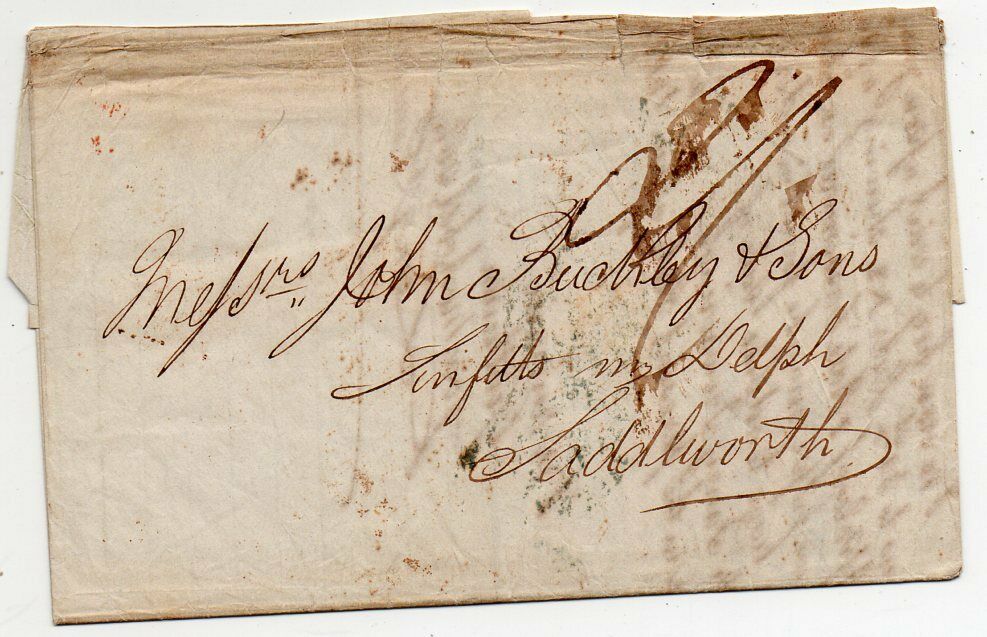 Messrs John Buckley & Sons
Linfitts nr Delph
Saddleworth